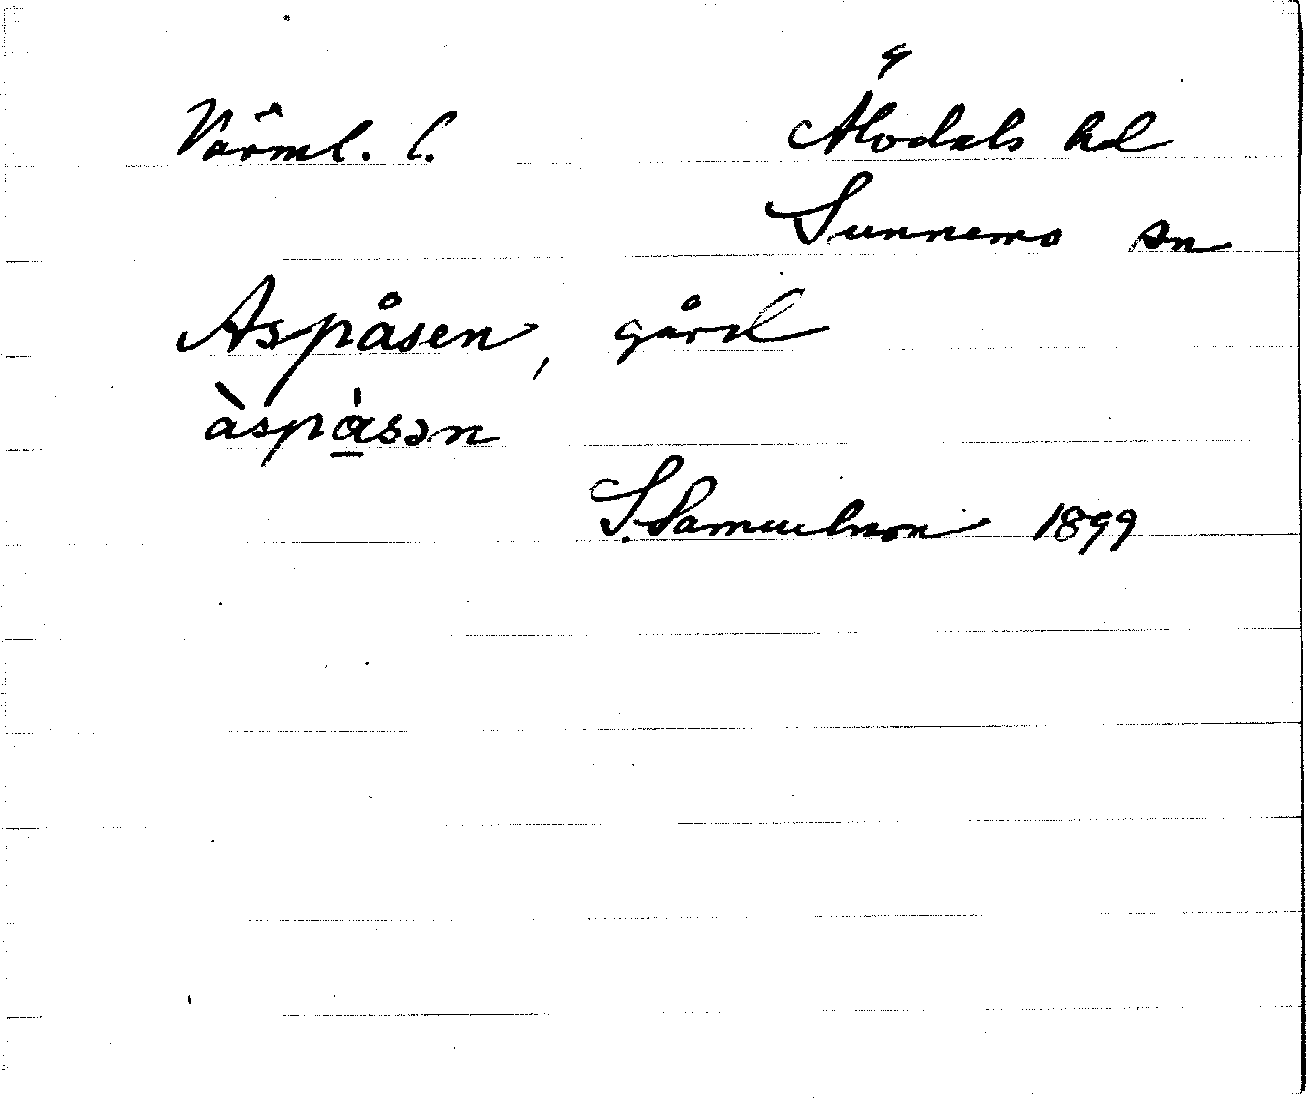 Värml. l. Älvdals hd
Sunnemo sn
Aspåsen, gård
àspɑ̀sən
S. Samuelsson 1899